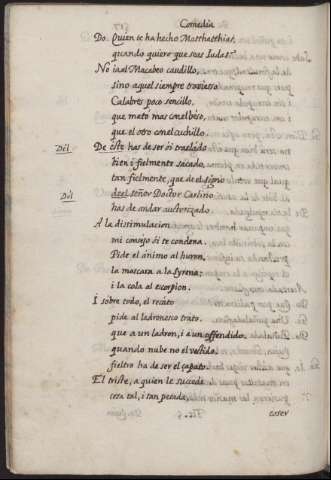 Comedia
Do. Quien te ha hecho Matthatthias,
quando quiere que seas Iudas?
No ia al Macabeo caudillo,
sino aquel siempre travieso
Calabres poco sencillo,
que mato mas con el beso,
que el otro con el cuchillo.
Del De este has de ser si traslado
bien i fielmente sacado,
tan fielmente, que de el signo
Del de el señor Doctor Carlino
has de andar autorizado.
A la dissimulacion
mi consejo si te condena.
Pide el animo al huron,
la mascara a la syrena;
i la cola al escorpion.
I sobre todo, el recato
pide al ladronesco trato.
que a un ladron, i a un offendido.
quando nube no el vestido,
fieltro ha de ser el çapato.
El triste, a quien le succede
cosa tal, i tan pesada,
caser